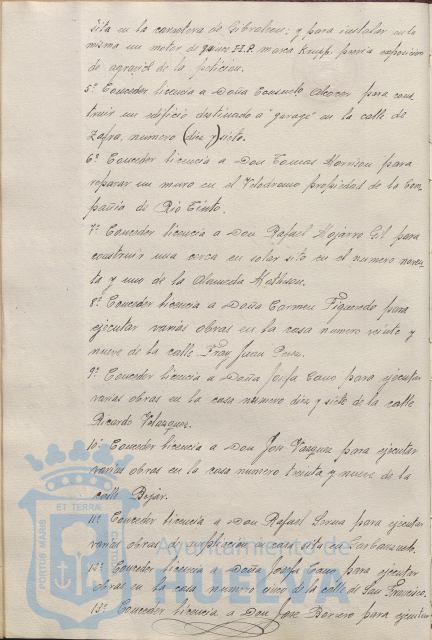 sita en la carretera de Gibraleon; y para instalar en la
misma un motor de quince H.P. marca Krupp, previa exposicion
de agravios de la peticion.
5º Conceder licencia a Doña Consuelo Alcocer para cons-
truir un edificio destinado a "garage" en la calle de
Zafra, numero (diez y) siete.
6º Conceder licencia a Don Tomas Morrison para
reparar un muro en el Velodromo propiedad de la Com-
pañia de Rio Tinto.
7º Conceder licencia a Don Rafael Mojarro Gil para
construir una cerca en solar sito en el numero noven-
ta y uno de la Alameda Matheson.
8º Conceder licencia a Doña Carmen Figueredo para
ejecutar varias obras en la casa numero veinte y
nueve de la calle Fray Juan Perez.
9º Conceder licencia a Doña Josefa Cano para ejecutar
varias obras en la casa numero diez y siete de la calle
Ricardo Velazquez.
10º Conceder licencia a Don José Vazquez para ejecutar
varias obras en la casa numero treinta y nueve de la
calle Bejar.
11º Conceder licencia a Don Rafael Serna para ejecutar
varias obras de ampliacion casa sita en
12º Conceder licencia a Doña Josefa Cano para ejecutar
obras en la casa numero cinco de la calle de San Francisco.
13º Conceder licencia a Don José Borrero para ejecutar
PORTUS MARIS ET TERRAE
Ayuntamiento de
HUELVA